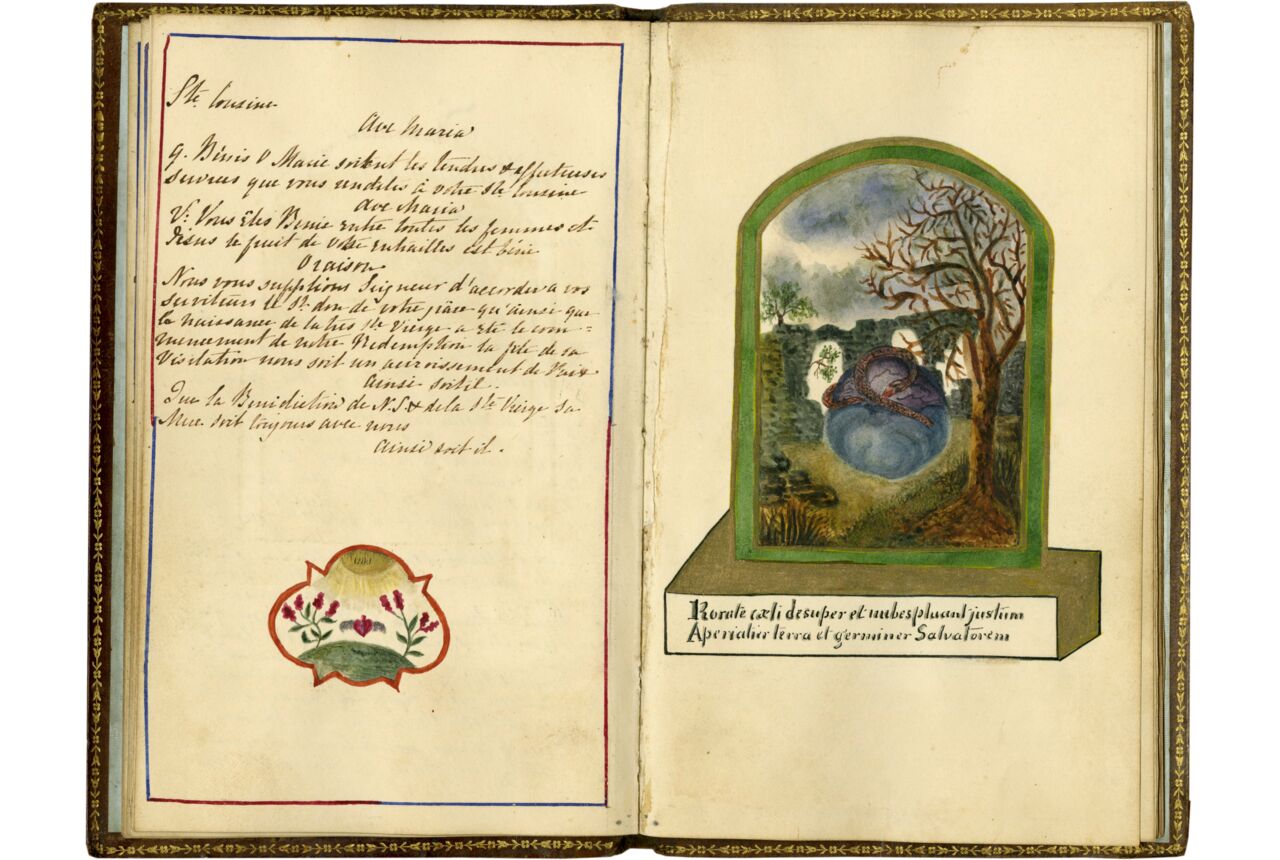 Ste Cousine
Ave Maria
9. Bénis O Marie soient les tendres & affectueuses
services que vous rendites à votre Ste Cousine
Ave Maria
V. Vous Etes Benie entre toutes les femmes et
Jésus le fruit de votre entrailles est béni
Oraison
Nous vous supplions Seigneur d'accorder a vos
serviteurs le St. don de votre grâce qu'ainsi que
la naissance de la tres Ste Vierge a été le com=
mencement de notre Redemption la fête de sa
Visitation nous soit un accroissement de Paix
Ainsi soit il.
Que la Benediction de N.S. & de la Ste Vierge Sa
Mere soit toujours avec nous
Ainsi soit il.
Rorate cæli desuper et nubes pluant justum
Aperiatur terra et germinet Salvatorem